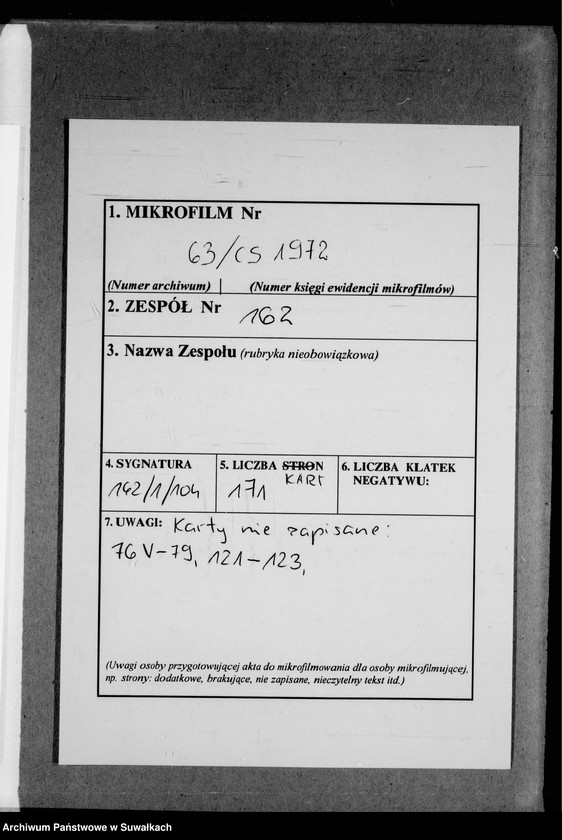 1. MIKROFILM Nr
63/CS 1972
(Numer archiwum) | (Numer księgi ewidencji mikrofilmów)
2. ZESPÓŁ Nr 162
3. Nazwa Zespołu (rubryka nieobowiązkowa)
4. SYGNATURA
162/1/104
5. LICZBA STRON
KART
171
6. LICZBA KLATEK
NEGATYWU:
7. UWAGI: Karty nie zapisane:
76V-79, 121-123,
(Uwagi osoby przygotowującej akta do mikrofilmowania dla osoby mikrofilmującej,
np. strony: dodatkowe, brakujące, nie zapisane, nieczytelny tekst itd.)
Archiwum Państwowe w Suwałkach